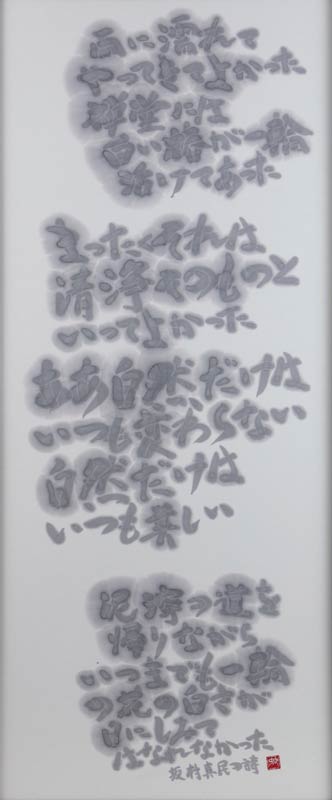 雨に濡れて
やってきてよかった
禅堂には
白い椿が一輪
活けてあった
まったくそれは
清浄そのものと
いってよかった
ああ自然だけは
いつも変わらない
自然だけは
いつも美しい
泥濘の道を
帰りながら
いつまでも一輪
の花の白さが
目にしみて
はなれなかった
坂村真民の詩